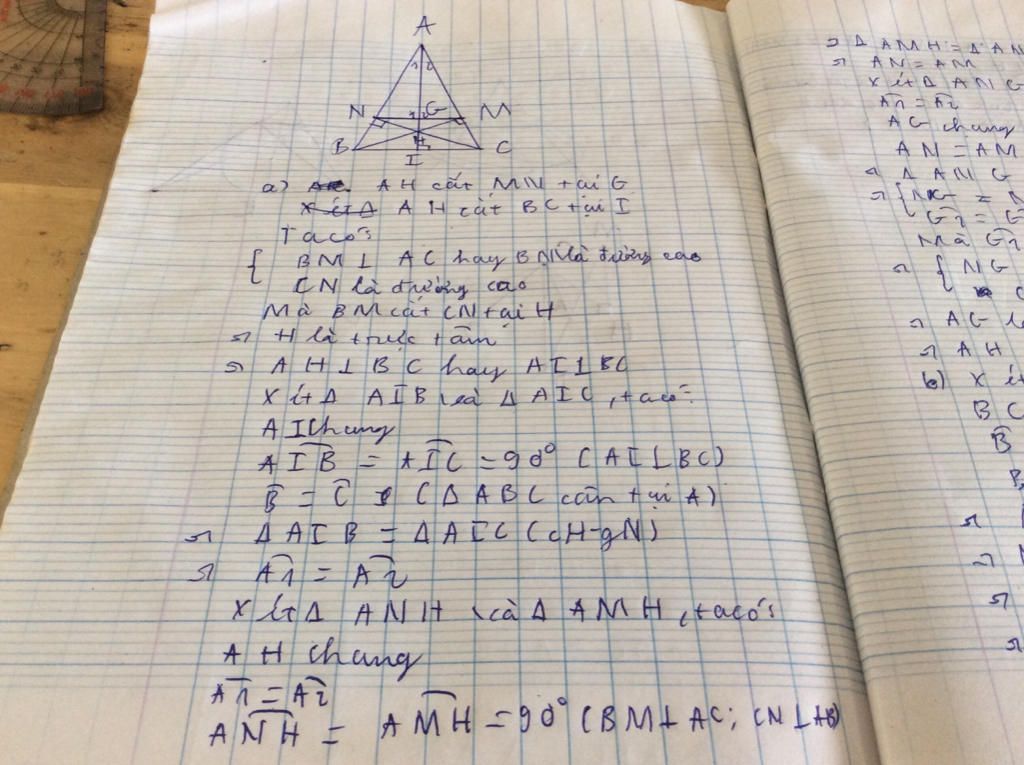 A
1 2
N G M
B H C
I
a) AH cắt MN tại G
Xét Δ AH cắt BC tại I
Ta có:
BM ⊥ AC hay BM là đường cao
CN là đường cao
Mà BM cắt CN tại H
=> H là trực tâm
=> AH ⊥ BC hay AI ⊥ BC
Xét Δ AIB và Δ AIC, ta có:
AI chung
AIB = AIC = 90° (AI ⊥ BC)
B = C (Δ ABC cân tại A)
=> Δ AIB = Δ AIC (cH-gN)
=> A1 = A2
Xét Δ ANH và Δ AMH, ta có:
AH chung
A1 = A2
ANH = AMH = 90° (BM ⊥ AC; CN ⊥ AB)
=> Δ AMH = Δ AN
=> AN = AM
Xét Δ ANG
A1 = A2
AG chung
AN = AM
Δ ANG
=> NG =
G2 = G
Mà G2
=> NG
=> AG
=> AH
b) Xét
BC
B